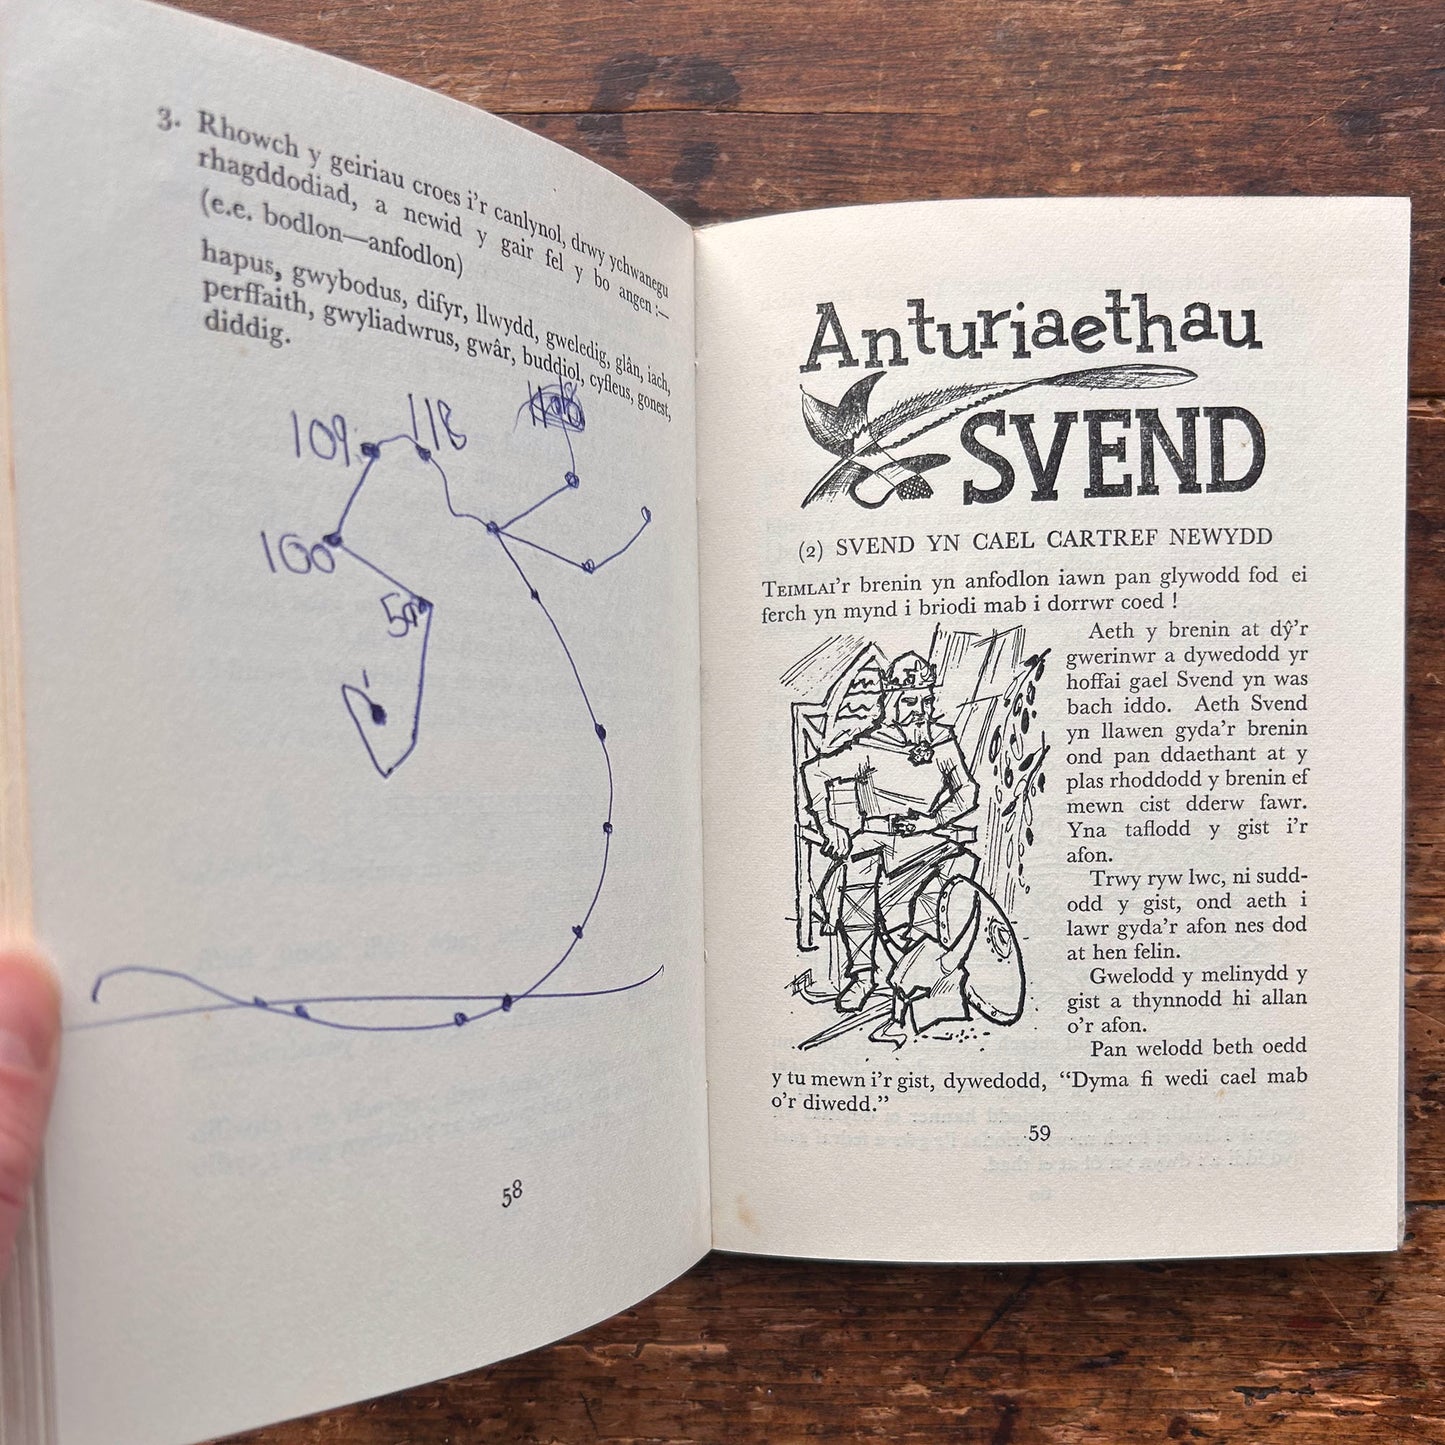 3. Rhowch y geiriau croes i'r canlynol, drwy ychwanegu
rhagddodiad, a newid y gair fel y bo angen :—
(e.e. bodlon—anfodlon)
hapus, gwybodus, difyr, llwydd, gweledig, glân, iach,
perffaith, gwyliadwrus, gwâr, buddiol, cyfleus, gonest,
diddig.
109
118
100
59
1
58
Anturiaethau
SVEND
(2) SVEND YN CAEL CARTREF NEWYDD
TEIMLAI'R brenin yn anfodlon iawn pan glywodd fod ei
ferch yn mynd i briodi mab i dorrwr coed !
Aeth y brenin at dŷ'r
gwerinwr a dywedodd yr
hoffai gael Svend yn was
bach iddo. Aeth Svend
yn llawen gyda'r brenin
ond pan ddaethant at y
plas rhoddodd y brenin ef
mewn cist dderw fawr.
Yna taflodd y gist i'r
afon.
Trwy ryw lwc, ni sudd-
odd y gist, ond aeth i
lawr gyda'r afon nes dod
at hen felin.
Gwelodd y melinydd y
gist a thynnodd hi allan
o'r afon.
Pan welodd beth oedd
y tu mewn i'r gist, dywedodd, “Dyma fi wedi cael mab
o'r diwedd.”
59